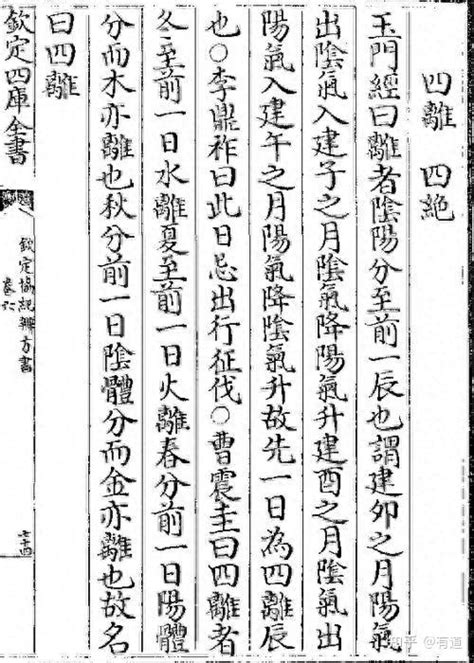 四離　四絶
玉門經曰離者陰陽分至前一辰也謂建卯之月陽氣
出陰氣入建子之月陰氣降陽氣升建酉之月陰氣出
陽氣入建午之月陽氣降陰氣升故先一日為四離辰
也○李鼎祚曰此日忌出行征伐○曹震圭曰四離者
冬至前一日水離夏至前一日火離春分前一日陽體
分而木亦離也秋分前一日陰體分而金亦離也故名
曰四離
欽定四庫全書
欽定協紀辨方書
卷六
七十四
知乎 @有道